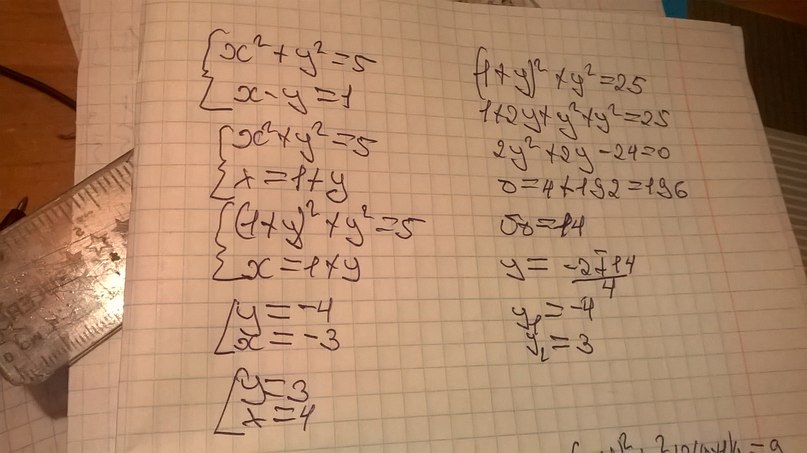 {x²+y²=5
x-y=1
{x²+y²=5
x=1+y
{(1+y)²+y²=5
x=1+y
[y=-4
x=-3
[y=3
x=4
(1+y)²+y²=25
1+2y+y²+y²=25
2y²+2y-24=0
D=4+192=196
√D=14
y=(-2∓14)/4
y₁=-4
y₂=3